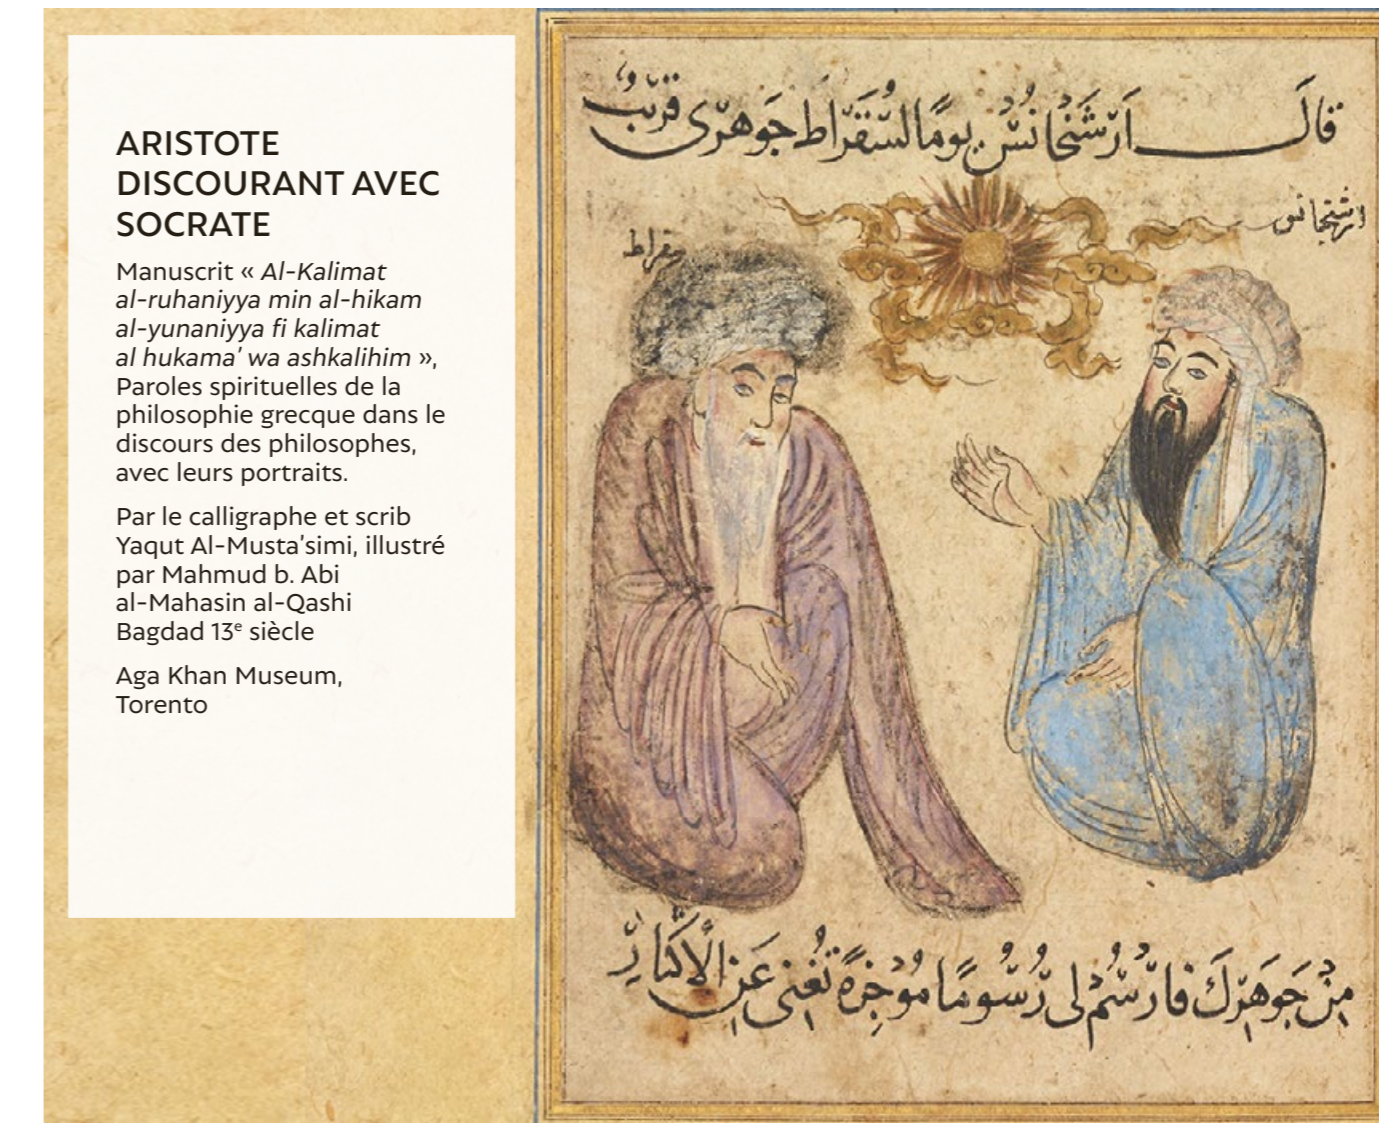 ARISTOTE
DISCOURANT AVEC
SOCRATE
Manuscrit « Al-Kalimat
al-ruhaniyya min al-hikam
al-yunaniyya fi kalimat
al hukama’ wa ashkalihim »,
Paroles spirituelles de la
philosophie grecque dans le
discours des philosophes,
avec leurs portraits.
Par le calligraphe et scrib
Yaqut Al-Musta’simi, illustré
par Mahmud b. Abi
al-Mahasin al-Qashi
Bagdad 13e siècle
Aga Khan Museum,
Torento
قالَ اَرشَنجانسُ يومًا لسقراط جَوهرى قريبٌ
ارشنجانس
سقراط
مِن جَوهَرِكَ فارسُم لى رُسُومًا مُوجزةً تُغنى عَنِ الاكثارِ